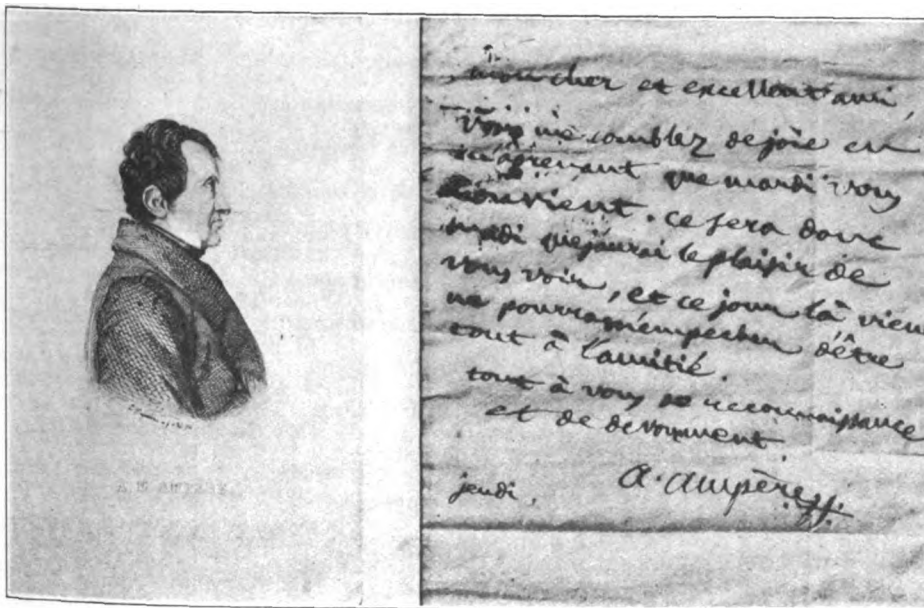 mon cher et excellent ami
vous me comblez de joie en
m'aprenant que mardi vous
convient. ce sera donc
mardi que j'aurai le plaisir de
vous voir, et ce jour là rien
ne pourra m'empecher d'être
tout à l'amitié.
tout à vous de reconnaissance
et de devoument
A. Ampère
jeudi,
A M AMPERE.